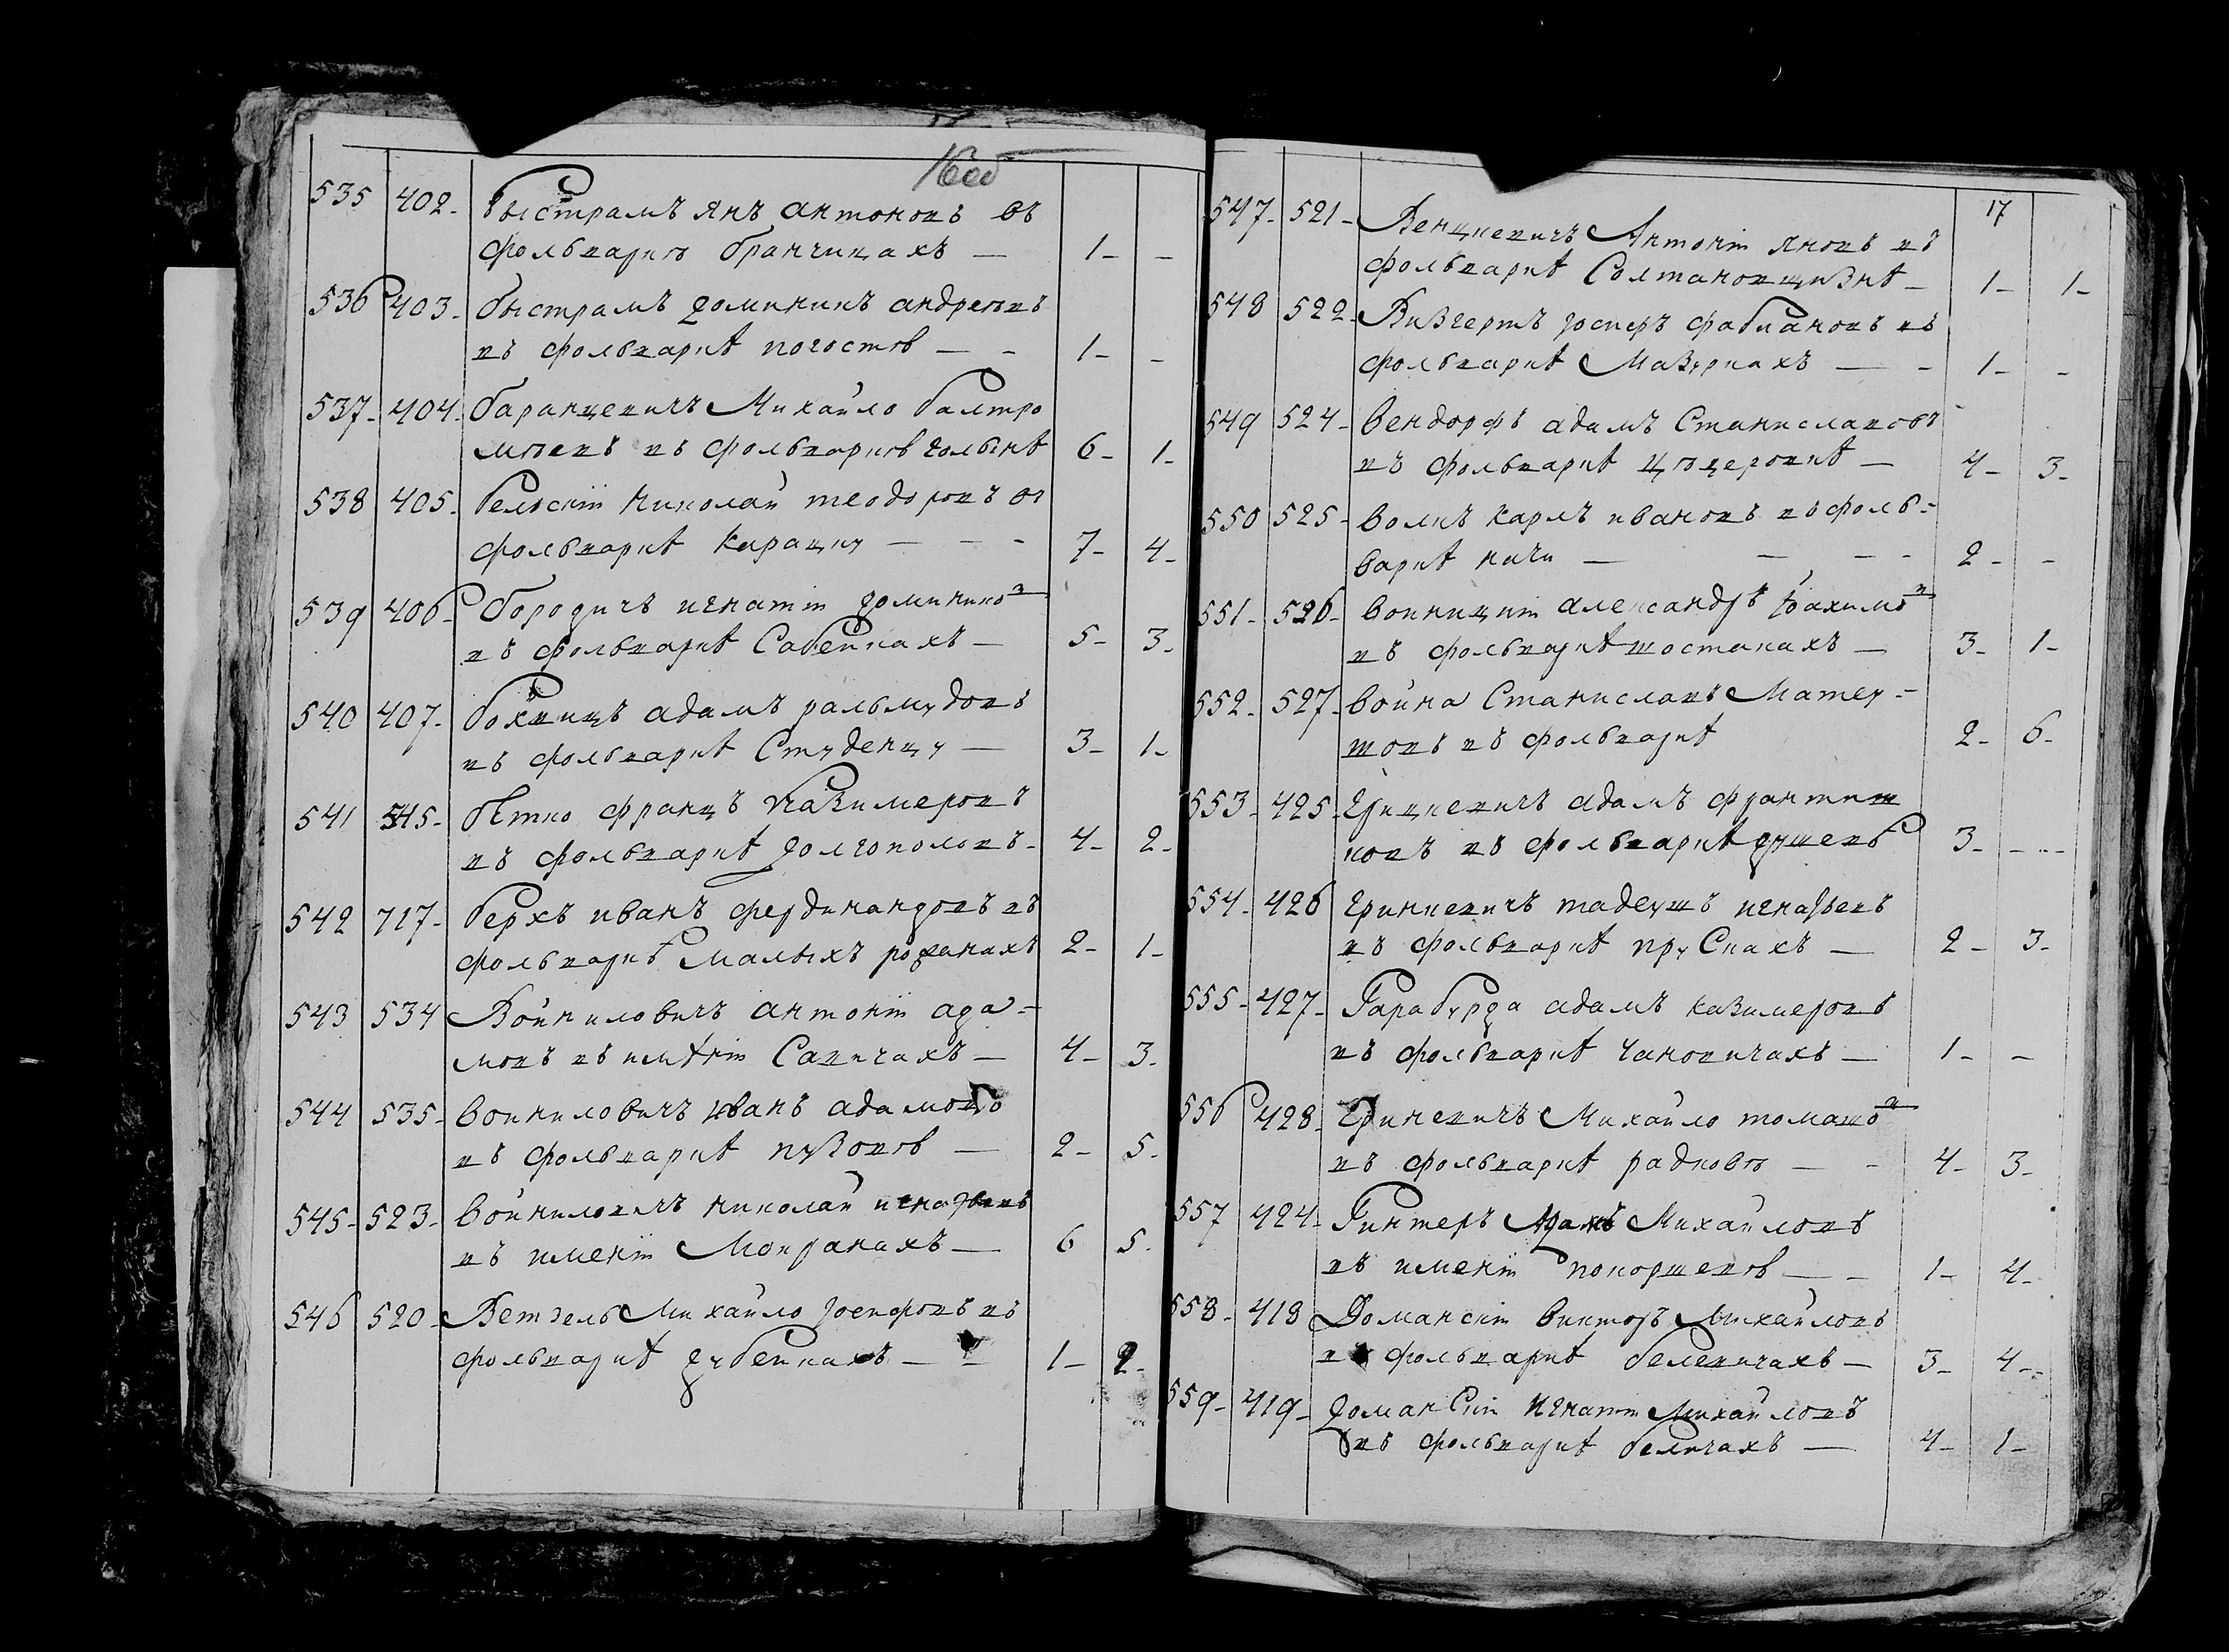 16об
535 402. Быстрамъ янъ антоновъ въ
фольваркѣ бранчицахъ — 1 - -
536 403. быстрамъ доминикъ андреевъ
въ фольваркѣ погостѣ — - 1 - -
537 - 404. баранцевичъ Михайло балтро
мѣевъ въ фольваркѣ голынѣ 6 - 1 -
538 405. бельскій Николай теодоровъ въ
фольваркѣ карацку — - - 7 - 4 -
539 406 - бородичъ игнатій доминико в
въ фольваркѣ Сабейкахъ — 5 - 3 -
540 407 - адамъ
въ фольваркѣ Студенцу — 3 - 1 -
541 545 - бѣтко францъ казимеровъ
въ фольваркѣ долгополовъ - 4 - 2 -
542 717 - берхъ иванъ фердинандровъ въ
фольваркѣ Малыхъ рожанахъ 2 - 1 -
543 534 Войниловичъ антоній ада =
мовъ въ имѣніи Савичахъ — 4 - 3 -
544 535 - войниловичъ иванъ адамовъ
въ фольваркѣ пузовѣ — 2 - 5 -
545 - 523 - войниловичъ николай игнатьевъ
въ именіи Мокранахъ — 6 5 -
546 520 - Ветзель Михайло іосифовъ въ
фольваркѣ дубейкахъ — - 1 - 2 -
17
547 - 521 - Венцкевичъ Антоній яновъ въ
фольваркѣ Солтановщизнѣ - 1 - 1 -
548 522 - Визгертъ іосифъ фабиановъ въ
фольваркѣ Мазуркахъ — - 1 - -
549 524 - вендорфъ адамъ Станиславовъ
въ фольваркѣ — 4 - 3 -
550 525 - волкъ карлъ ивановъ въ фоль =
варкѣ начи — — - - 2 - -
551 - 526 - войницкій александръ іоахимо в
въ фольваркѣ шостакахъ — 3 - 1 -
552 - 527 - война Станиславъ Матеу =
шовъ въ фольваркѣ 2 - 6 -
553 - 425 - Грицкевичъ адамъ францтиш
ковъ въ фольваркѣ 3 - - - -
554 - 426 гринкевичъ тадеушъ игнатьевъ
въ фольваркѣ пруСкахъ — 2 - 3 -
555 - 427 - Гарабурда адамъ казимеровъ
въ фольваркѣ чановичахъ — 1 - -
556 428 - Гриневичъ Михайло томашо в
въ фольваркѣ радковѣ — - 4 - 3 -
557 424 - Гинтеръ Адамъ Михайловъ
въ именіи покоршевѣ — - 1 - 4 -
558 - 418 Доманскій викторъ Михайловъ
въ фольваркѣ белевичахъ — 3 - 4 -
559 - 419 - доманСкій игнатій Михайловъ
въ фольваркѣ беличахъ — 4 - 1 -